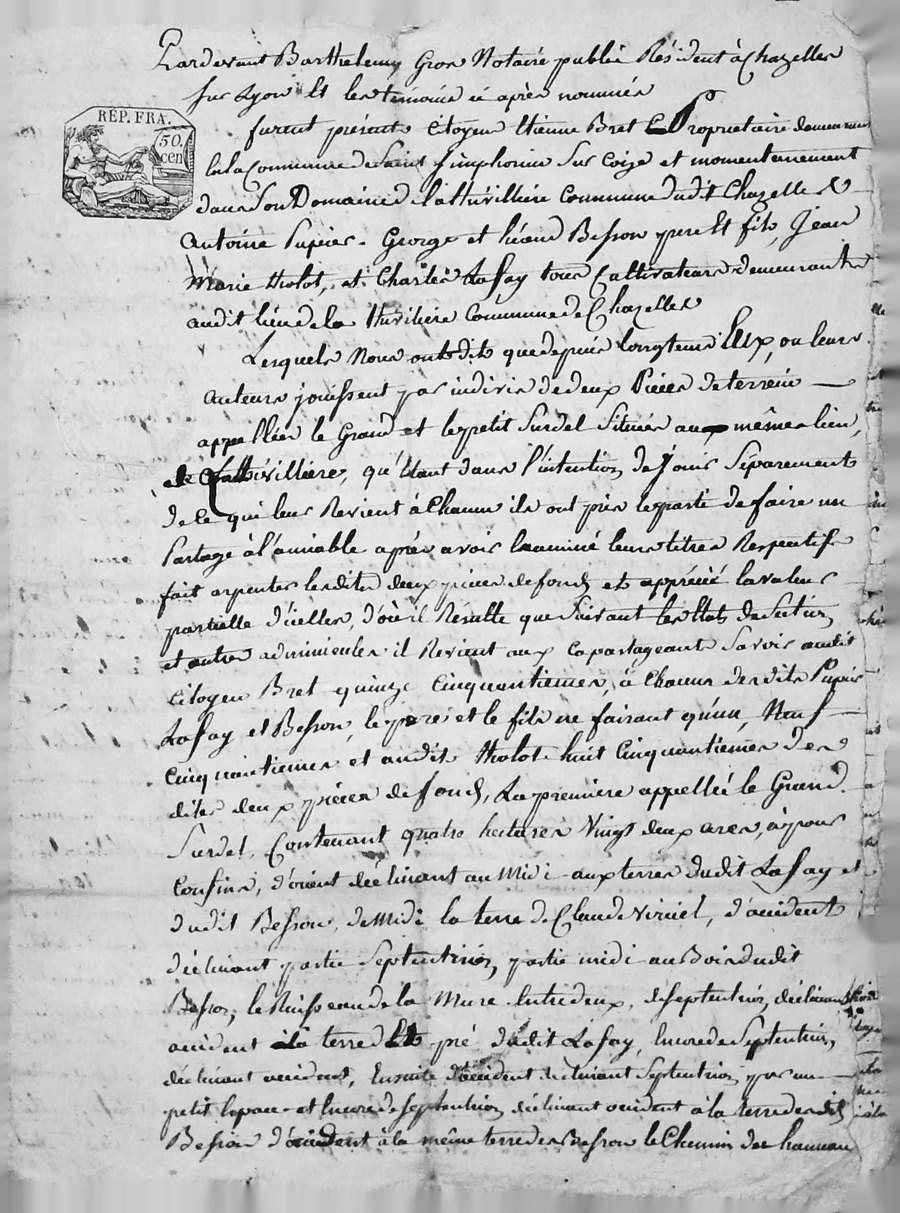 Pardevant Barthelemy Gros Notaire public Résident à Chazelles
sur Lyon Et les temoins ci après nommés
RÉP. FRA.
50.
cen
furent présents Citoyen Etienne Bret Propriétaire demeurant
en la Commune de Saint Simphorien sur Coize et momentanement
dans son Domaine de Commune dudit Chazelles
Antoine Pupier, George et Besson pere Et fils, Jean
Marie Tholot, et Charles Lafay tous Cultivateurs demeurants
audit lieu de la Commune de Chazelles
Lesquels Nous ont dits que depuis longtems Eux, ou leurs
auteurs jouissent par indivis de deux Pieces de terrein
appellées le Grand et le petit Surdel Situées aux mêmes lieu
de qu'étant dans l'intention de Jouir Séparement
de ce qui leur Revient à Chacun ils ont pris le parti de faire un
Partage à l'amiable après avoir Examiné leurs titres Respectifs
fait arpenter lesdites deux pieces de fonds et apprécié la valeur
partielle d'icelles, d'où il Résulte que Suivant les Etats de Section
et autres adminicules il Revient aux Copartageants Savoir audit
Citoyen Bret quinze Cinquantiemes, à Chacun desdits Pupier
Lafay et Besson, le pere et le fils ne faisant qu'un, Neuf
Cinquantiemes et audit Tholot huit Cinquantiemes des
dites deux pieces de fonds, La premiere appellée le Grand
Surdel, Contenant quatre hectares Vingt deux ares, a pour
Confins, d'orient déclinant au Midi aux terres dudit Lafay et
dudit Besson, de Midi la terre de Claude Virciel, d'occident
déclinant partie Septentrion, partie midi au Bois dudit
Besson, le Ruisseau de la Mure Entredeux, de Septentrion, déclinant
occident à la terre Et pré dudit Lafay, Encore de Septentrion,
déclinant occident, Ensuite d'occident déclinant Septentrion, par un
petit Espace et Encore de Septentrion déclinant occident à la terre desdits
Besson d'occident à la même terre des Besson le Chemin des hameau